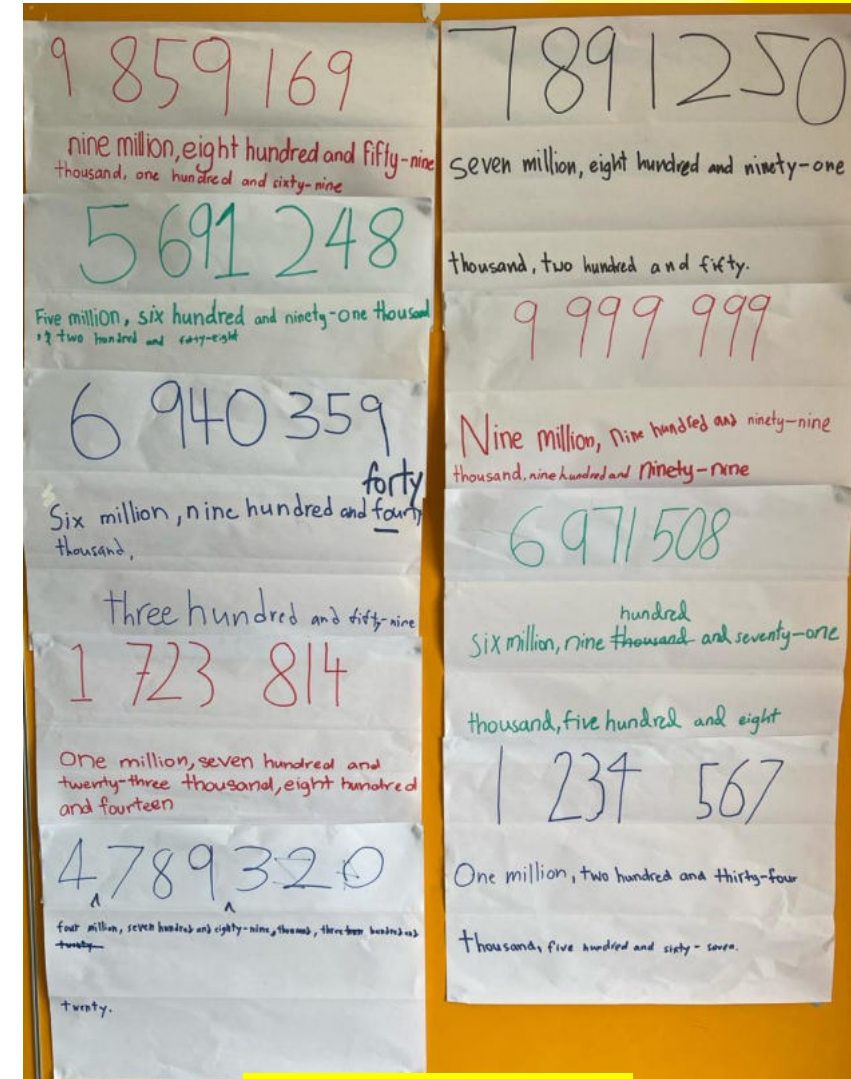 9 859 169
nine million, eight hundred and fifty-nine
thousand, one hundred and sixty-nine
5 691 248
Five million, six hundred and ninety-one thousand
, two hundred and forty-eight
6 940 359
forty
Six million, nine hundred and fourty
thousand,
three hundred and fifty-nine
1 723 814
One million, seven hundred and
twenty-three thousand, eight hundred
and fourteen
4 789 320
four million, seven hundred and eighty-nine, thousand, three hundred and
twenty
twenty.
7891250
seven million, eight hundred and ninety-one
thousand, two hundred and fifty.
9 999 999
Nine million, nine hundred and ninety-nine
thousand, nine hundred and ninety-nine
6 971 508
hundred
six million, nine thousand and seventy-one
thousand, five hundred and eight
1 234 567
One million, two hundred and thirty-four
thousand, five hundred and sixty-seven.